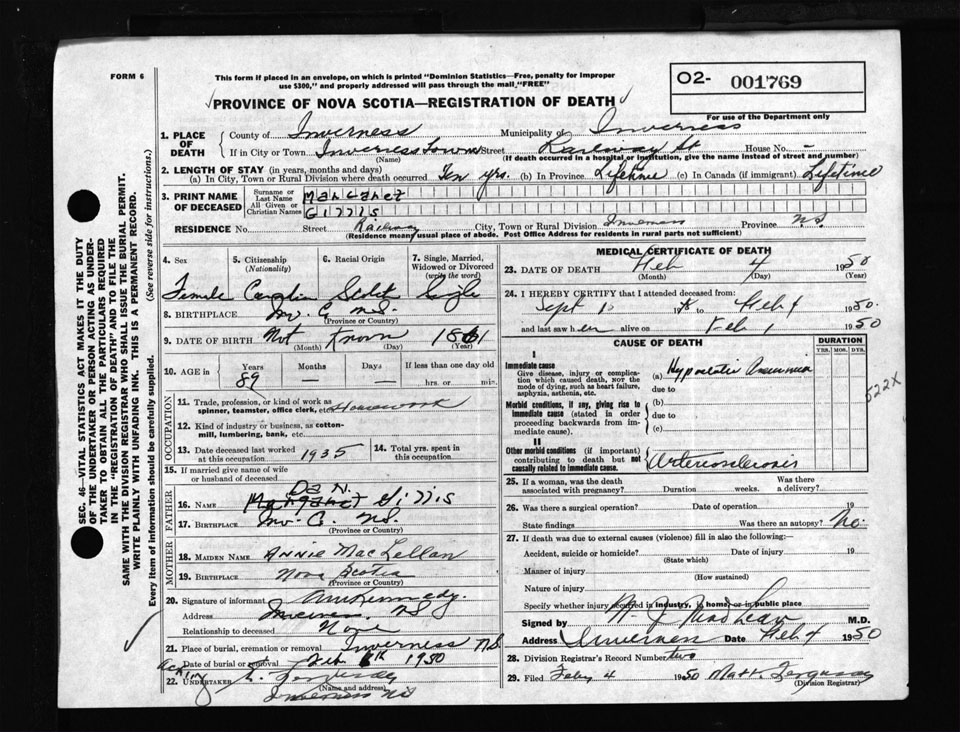 FORM 6
This form if placed in an envelope, on which is printed "Dominion Statistics—Free, penalty for improper
use $300," and properly addressed will pass through the mail "FREE"
O2- 001769
For use of the Department only
PROVINCE OF NOVA SCOTIA—REGISTRATION OF DEATH
1. PLACE OF DEATH County of Inverness Municipality of Inverness
If in City or Town Inverness Town Street Railway St House No. -
(Name) (If death occurred in a hospital or institution, give the name instead of street and number)
2. LENGTH OF STAY (in years, months and days)
(a) In City, Town or Rural Division where death occurred Ten yrs. (b) In Province Lifetime (c) In Canada (if immigrant) Lifetime
3. PRINT NAME OF DECEASED Surname or Last Name Margaret
All Given or Christian Names Gillis
RESIDENCE No. Street Railway City, Town or Rural Division Inverness Province N.S.
(Residence means usual place of abode. Post Office Address for residents in rural parts not sufficient)
4. Sex 5. Citizenship (Nationality) 6. Racial Origin 7. Single, Married, Widowed or Divorced (write the word)
Female Canadian Scotch Single
8. BIRTHPLACE Inv. C. N.S.
(Province or Country)
9. DATE OF BIRTH Not Known 1861
(Month) (Day) (Year)
10. AGE in Years Months Days If less than one day old
89 — — hrs. or min.
OCCUPATION
11. Trade, profession, or kind of work as
spinner, teamster, office clerk, etc. Housework
12. Kind of industry or business, as cotton-
mill, lumbering, bank, etc.
13. Date deceased last worked at this occupation 1935 14. Total yrs. spent in this occupation
15. If married give name of wife
or husband of deceased
FATHER
Dan.
16. Name Margaret Gillis
17. BIRTHPLACE Inv. C. N.S.
(Province or Country)
MOTHER
18. MAIDEN NAME Annie MacLellan
19. BIRTHPLACE Nova Scotia
(Province or Country)
20. Signature of informant Kennedy.
Address Inverness NS
Relationship to deceased None
21. Place of burial, cremation or removal Inverness N.S
Date of burial or removal Feb 6th 1950
Acting
22. UNDERTAKER
(Name and address)
Inverness NS
MEDICAL CERTIFICATE OF DEATH
23. DATE OF DEATH Feb 4 1950
(Month) (Day) (Year)
24. I HEREBY CERTIFY that I attended deceased from:
Sept 10 to Feb 4 1950.
and last saw her alive on Feb 1 1950
CAUSE OF DEATH DURATION
YRS. MOS. DYS.
I
Immediate cause
Give disease, injury or complication which caused death, NOT the mode of dying, such as heart failure, asphyxia, asthenia, etc.
(a) Hypostatic Pneumonia
due to
522X
Morbid conditions, if any, giving rise to immediate cause (stated in order proceeding backwards from immediate cause).
(b)
due to
(c)
II
Other morbid conditions (if important) contributing to death but not causally related to immediate cause.
Arteriosclerosis
25. If a woman, was the death associated with pregnancy? Duration weeks. Was there a delivery?
26. Was there a surgical operation? Date of operation 19
State findings Was there an autopsy? No.
27. If death was due to external causes (violence) fill in also the following:—
Accident, suicide or homicide? Date of injury 19
(State which)
Manner of injury
(How sustained)
Nature of injury
Specify whether injury occurred in industry, in home, or in public place
Signed by M.D.
Address Inverness Date Feb 4 1950
28. Division Registrar's Record Number two
29. Filed Feby 4 1950 Matt. Ferguson
(Division Registrar)
SEC. 46—VITAL STATISTICS ACT MAKES IT THE DUTY
OF THE UNDERTAKER OR PERSON ACTING AS UNDER-
TAKER TO OBTAIN ALL THE PARTICULARS REQUIRED
IN THE "REGISTRATION OF DEATH" AND TO FILE THE
SAME WITH THE DIVISION REGISTRAR WHO SHALL ISSUE THE BURIAL PERMIT.
WRITE PLAINLY WITH UNFADING INK. THIS IS A PERMANENT RECORD.
Every item of information should be carefully supplied. (See reverse side for instructions.)